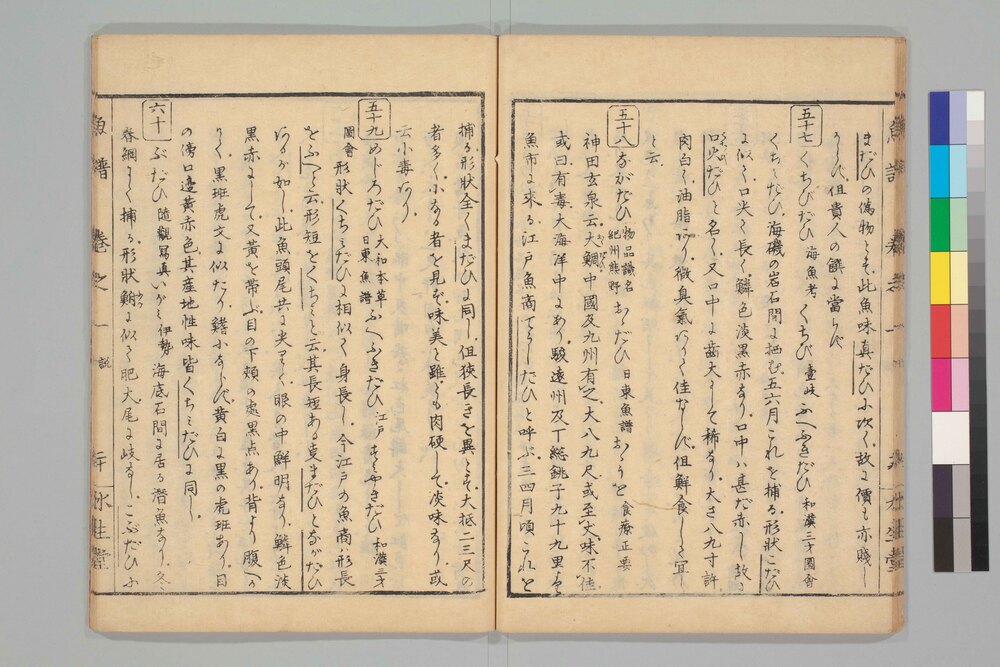 まだひの偽物とす此魚味真だひに次く故に價も亦賤し
からず但貴人の饌に當らず
五十七
くちびだひ 海魚考 くちび 壹岐 ふへふきだひ 和漢三才圖會
くちミだひ海磯の岩石間に栖む五六月これを捕る形状こだひ
に似て口尖て長く鱗色淡黒赤なり口中ハ甚だ赤し故に
口火だひと名く又口中に齒大にして稀なり大さ八九寸許
肉白く油脂ありて微臭氣ありて佳ならず但鮮食して宜し
と云
五十八
ながだひ 物品識名 紀州熊野 おゝだひ 日東魚譜 食療正要
神田玄泉云大鯛中國及九州有之大八九尺或至丈味不佳
或曰有毒大海洋中にあり駿遠州及下總銚子九十九里
魚市に来る江戸魚商てうしだひと呼ぶ三四月頃これを
捕る形状全くまだひに同し但狭長きを異とす大抵二三尺の
者多く小なる者を見ず味美と雖ども肉硬して淡味なり或
云小毒あり
五十九
めじろだひ 大和本草 日東魚譜 ふへふきだひ 江戸 やきだひ 和漢三才
圖會 形状くちミだひに相似て身長し今江戸の魚商ハ形長
をふへと云形短をくちミと云其長短ある叓まだひとながだひ
あるが如し此魚頭尾共に尖りて眼の中鮮明なり鱗色淡
黒赤にして又黄を帯ぶ目の下頬の處黒点あり背より腹へかけ
て黒班虎文に似たり鰭小ならず黄白に黒の虎班あり目
の傍口邉黄赤色其産地性味皆くちミだひに同し
六十
ぶだひ 隨觀寫真 いがミ 伊勢 海底石間に居る潜魚なり冬
春網にて捕る形状鮒に似て肥大尾に岐なしこぶだひふ
魚譜 卷之一 説